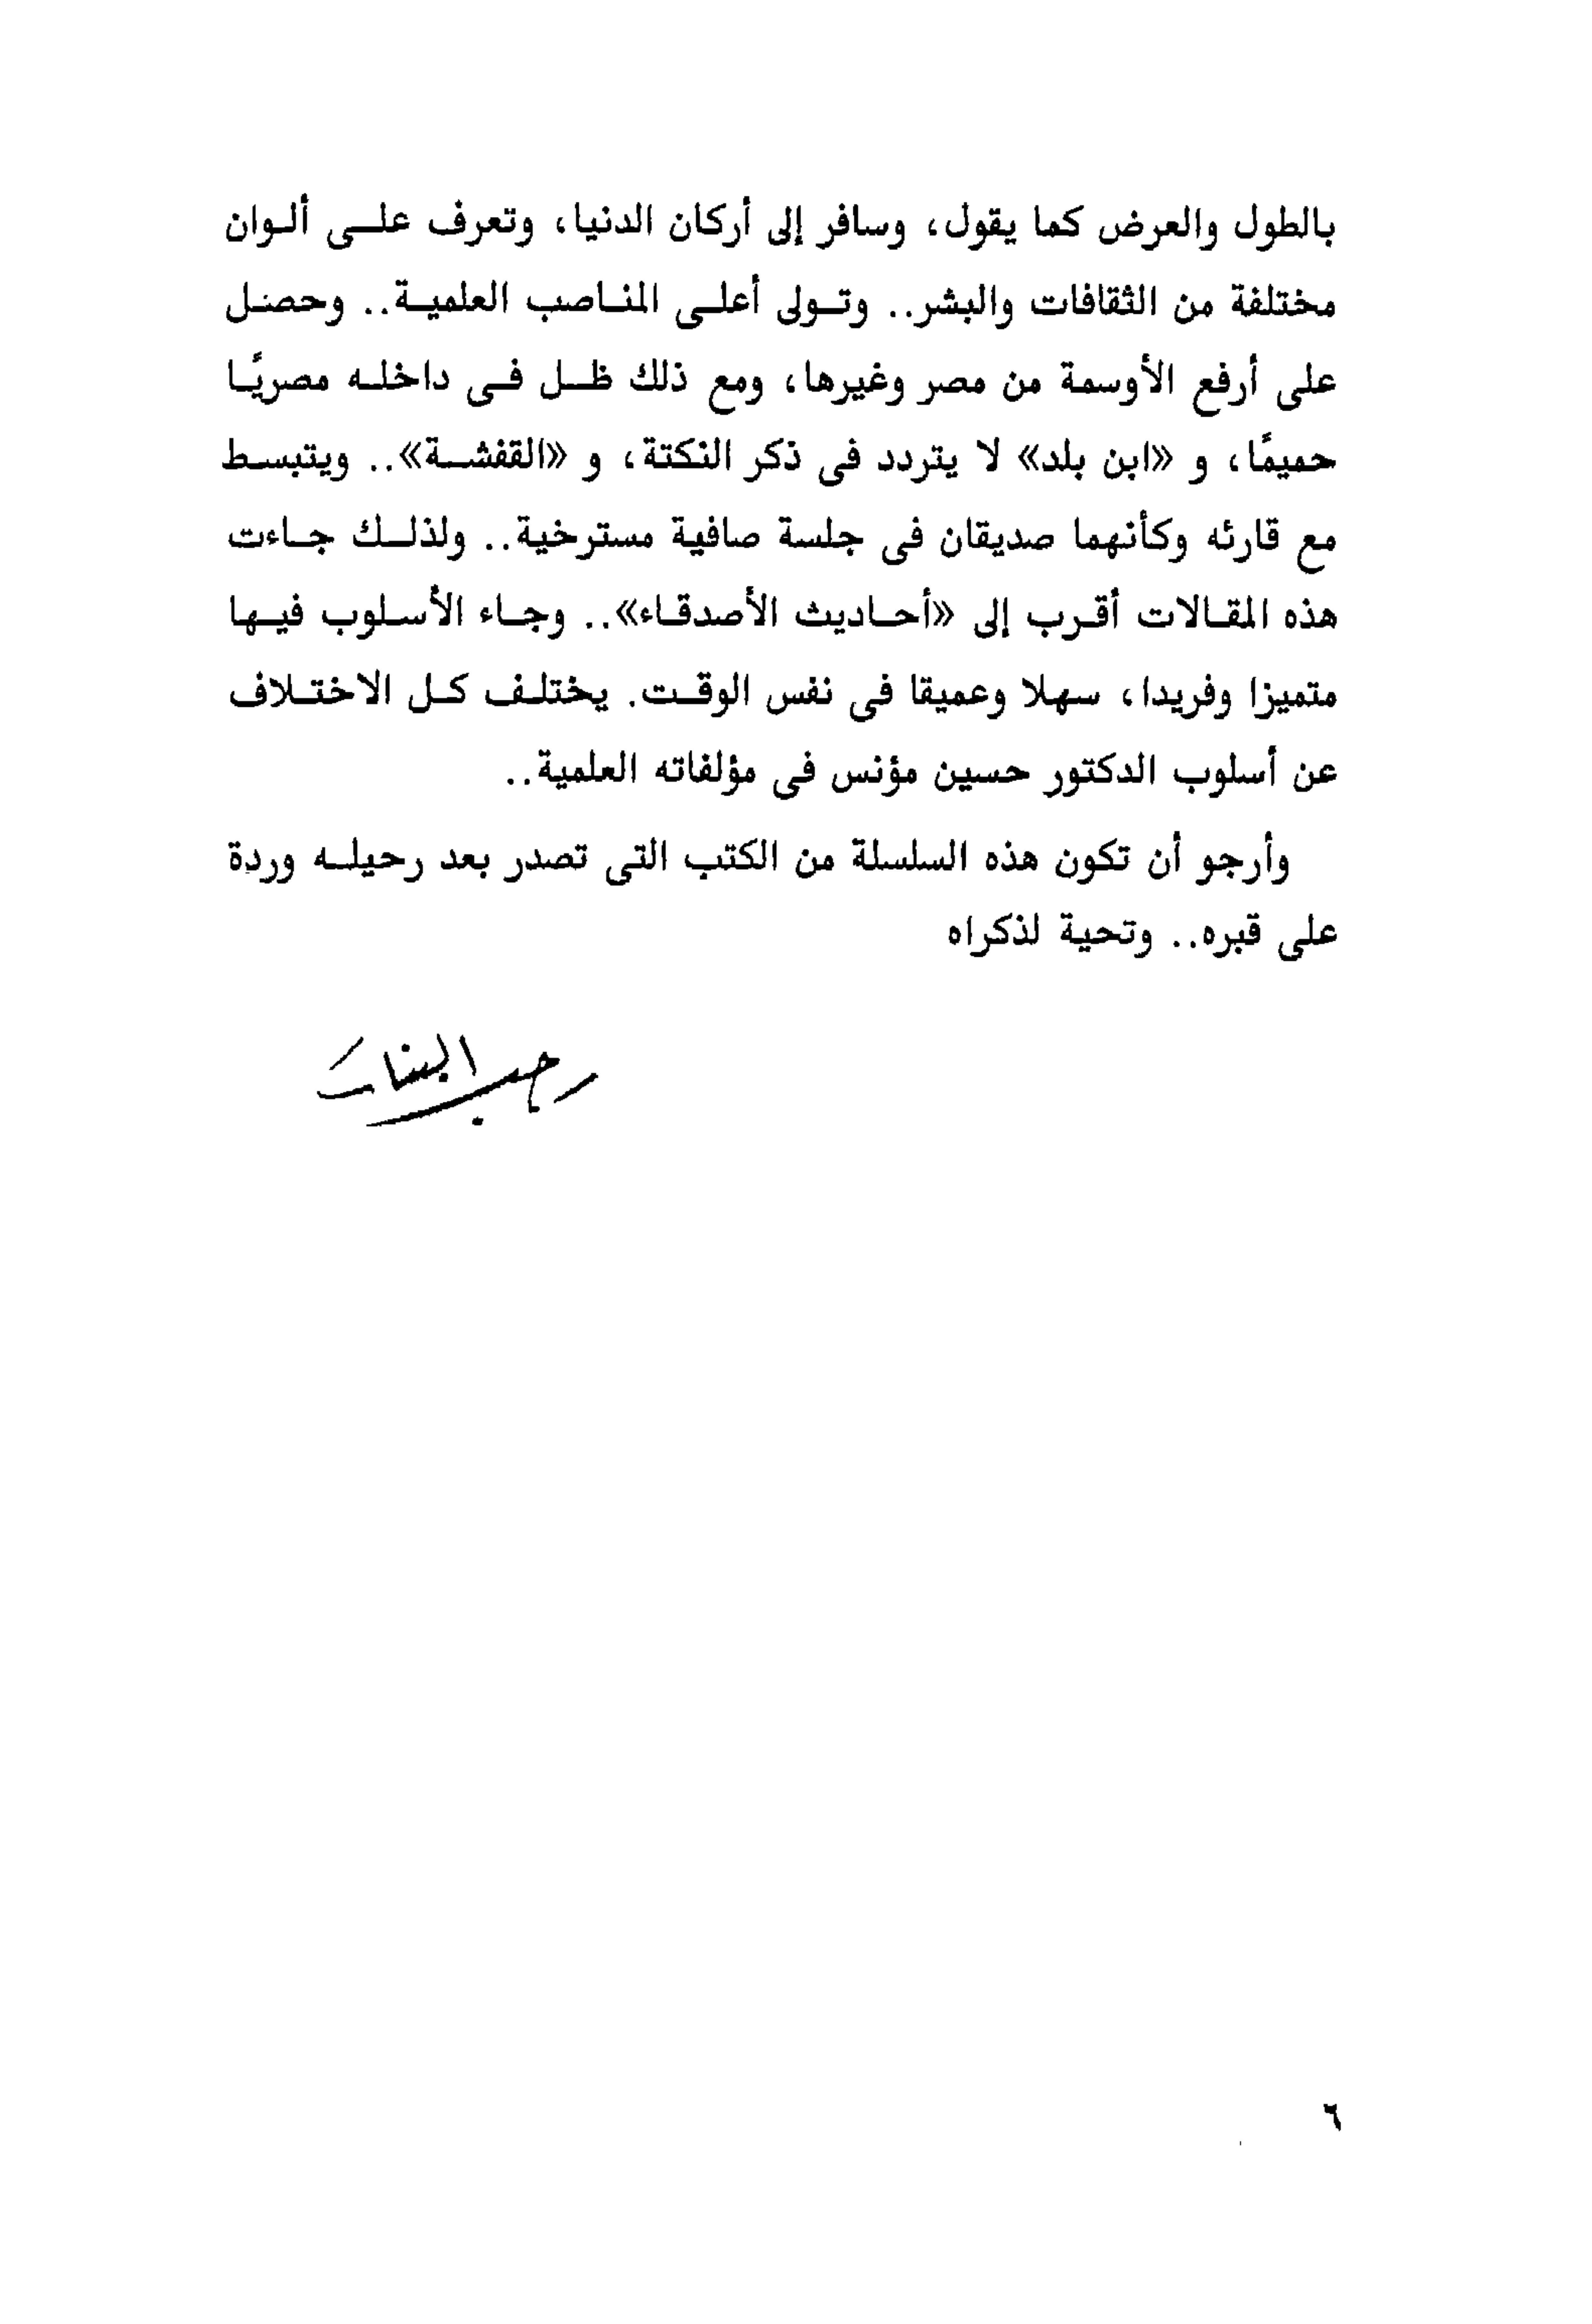 بالطول والعرض كما يقول، وسافر إلى أركان الدنيا، وتعرف على ألوان
مختلفة من الثقافات والبشر.. وتولى أعلى المناصب العلمية.. وحصل
على أرفع الأوسمة من مصر وغيرها، ومع ذلك ظل فى داخله مصريًا
حميمًا، و «ابن بلد» لا يتردد فى ذكر النكتة، و «القفشة».. ويتبسط
مع قارئه وكأنهما صديقان فى جلسة صافية مسترخية.. ولذلك جاءت
هذه المقالات أقرب إلى «أحاديث الأصدقاء».. وجاء الأسلوب فيها
متميزا وفريدا، سهلا وعميقا فى نفس الوقت. يختلف كل الاختلاف
عن أسلوب الدكتور حسين مؤنس فى مؤلفاته العلمية..
وأرجو أن تكون هذه السلسلة من الكتب التى تصدر بعد رحيله وردة
على قبره.. وتحية لذكراه
رجب البنا
٦